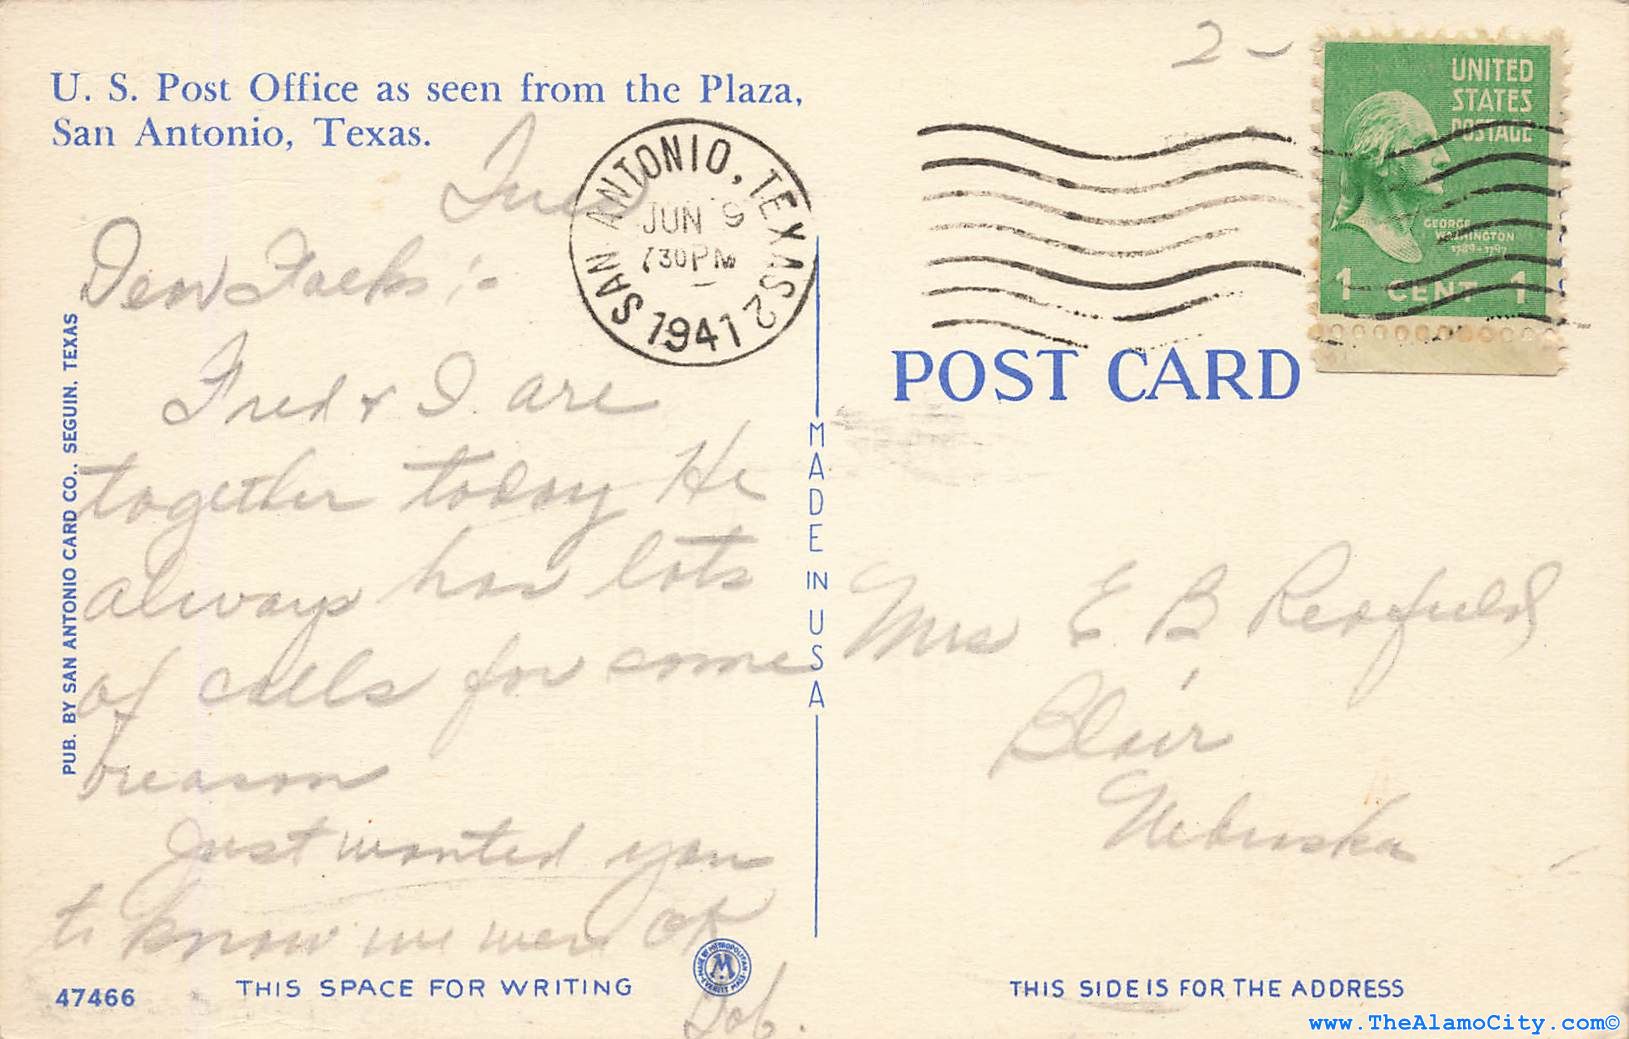 2 -
U. S. Post Office as seen from the Plaza,
San Antonio, Texas.
SAN ANTONIO, TEXAS 2
JUN 9
730 PM
1941
UNITED
STATES
POSTAGE
GEORGE
WASHINGTON
1789-1797
1 CENT 1
POST CARD
Tues
Dear Folks :-
Fred & I are
together today He
always has lots
of calls for some
reason
Just wanted you
to know we were OK
Bob.
MADE IN USA
Mrs E B Redfield
Blair
Nebraska
PUB. BY SAN ANTONIO CARD CO., SEGUIN, TEXAS
47466
THIS SPACE FOR WRITING
MADE BY METROPOLITAN
M
EVERETT MASS
THIS SIDE IS FOR THE ADDRESS
www.TheAlamoCity.com©